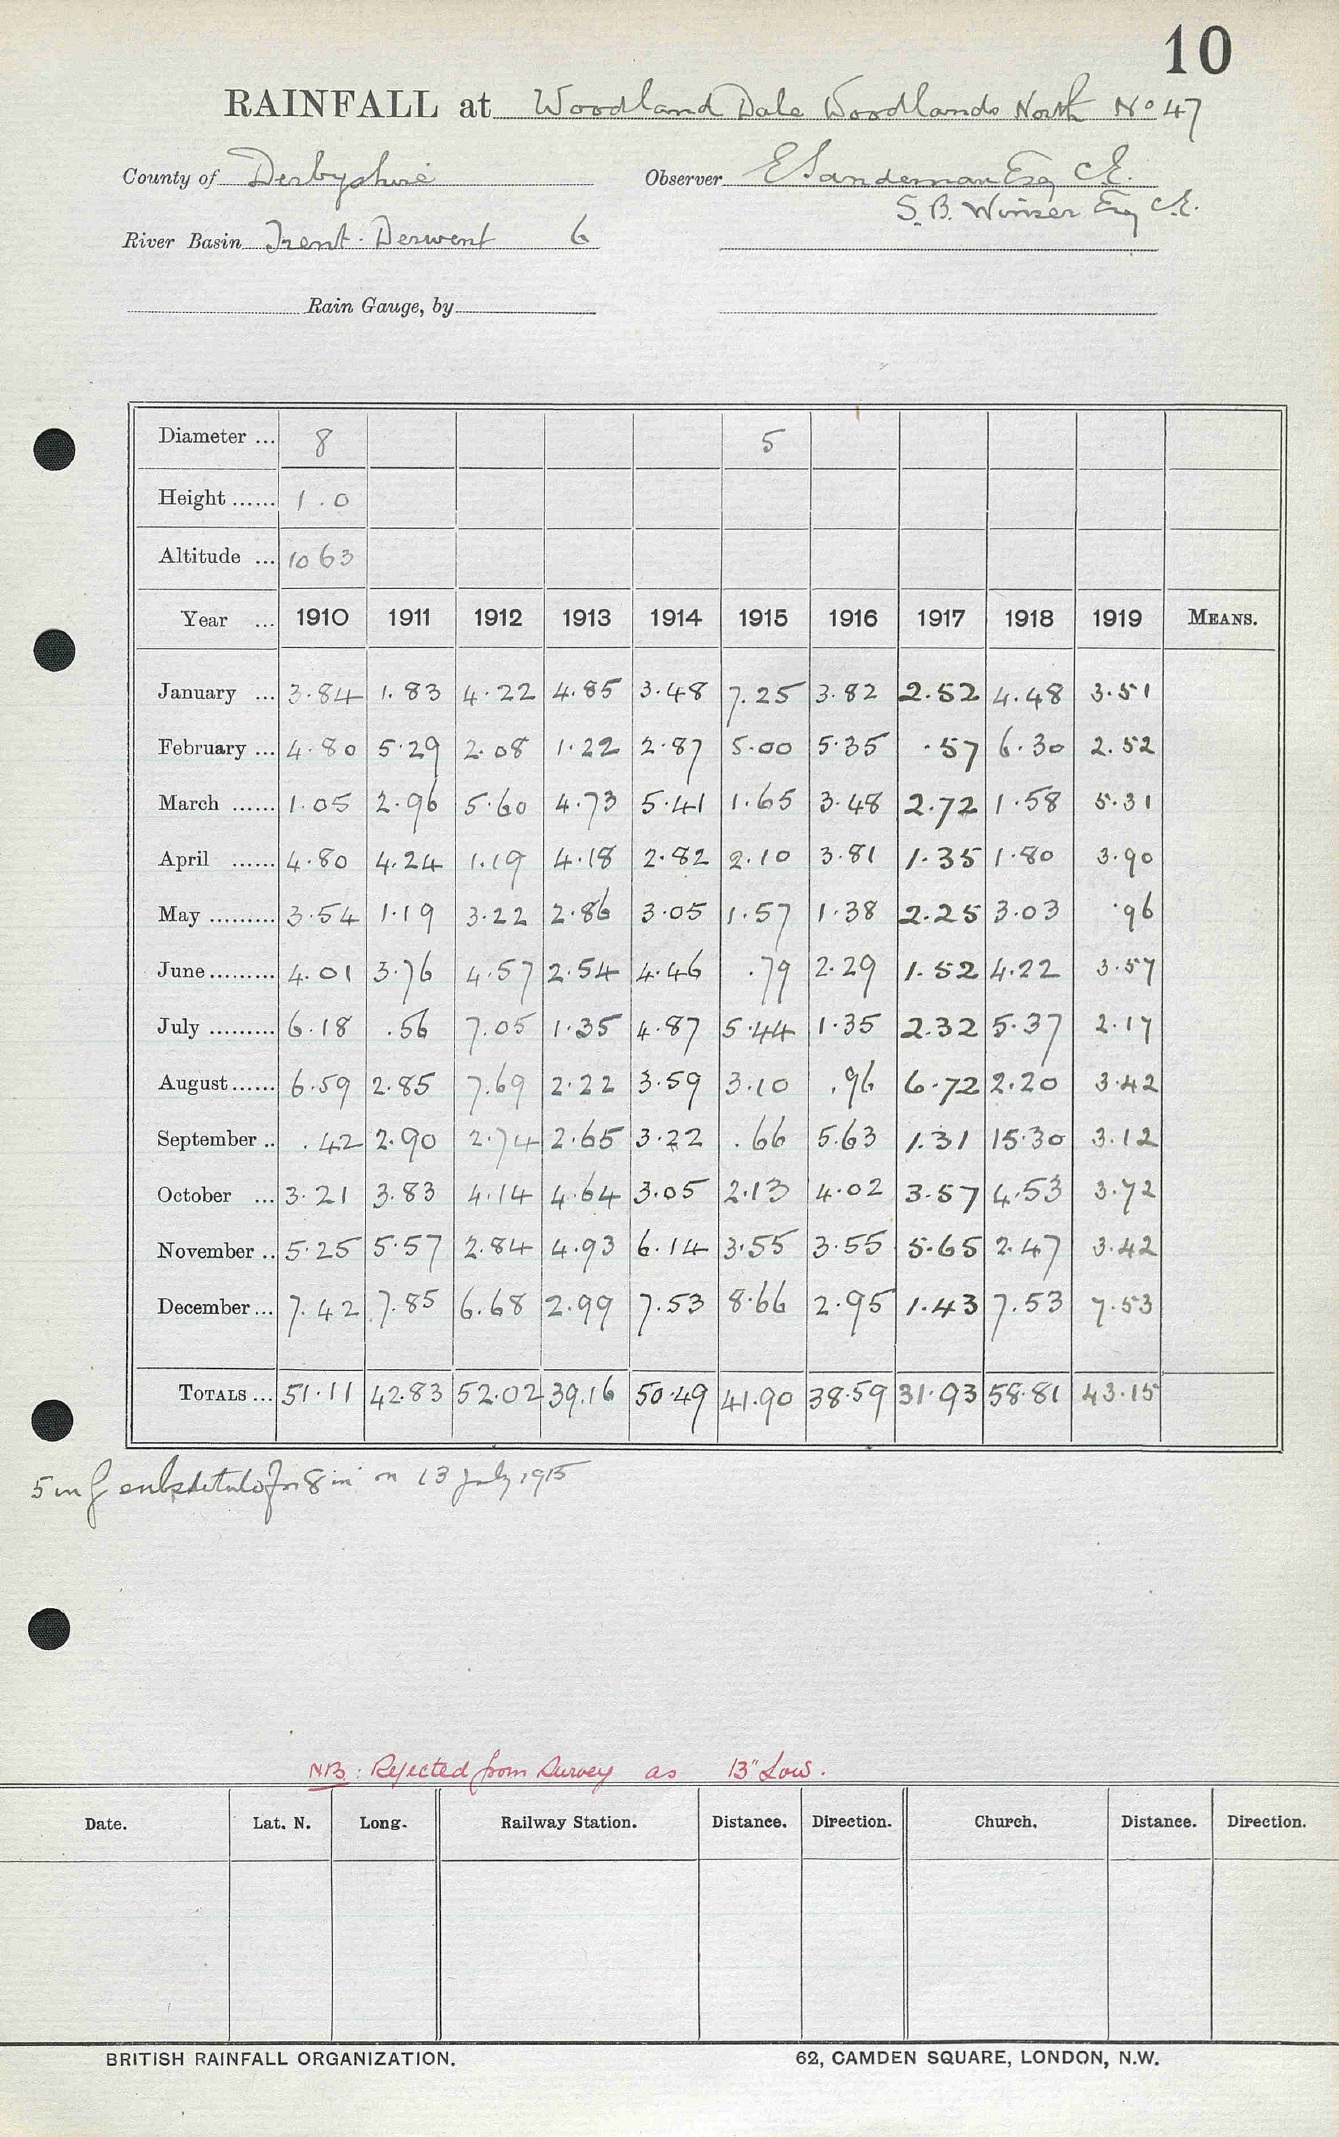 10
RAINFALL at Woodland Dale Woodlands North No 47
County of Derbyshire Observer E Sandeman Esq C.E.
S. B. Winser Esq C.E.
River Basin Trent. Derwent 6
Rain Gauge, by
Diameter ... 8 5
Height ...... 1.0
Altitude ... 1063
Year ... 1910 1911 1912 1913 1914 1915 1916 1917 1918 1919 MEANS.
January ... 3.84 1.83 4.22 4.85 3.48 7.25 3.82 2.52 4.48 3.51
February ... 4.80 5.29 2.08 1.22 2.87 5.00 5.35 .57 6.30 2.52
March ...... 1.05 2.96 5.60 4.73 5.41 1.65 3.48 2.72 1.58 5.31
April ...... 4.80 4.24 1.19 4.18 2.82 2.10 3.81 1.35 1.80 3.90
May ......... 3.54 1.19 3.22 2.86 3.05 1.57 1.38 2.25 3.03 .96
June ......... 4.01 3.76 4.57 2.54 4.46 .79 2.29 1.52 4.22 3.57
July ......... 6.18 .56 7.05 1.35 4.87 5.44 1.35 2.32 5.37 2.17
August ...... 6.59 2.85 7.69 2.22 3.59 3.10 .96 6.72 2.20 3.42
September .. .42 2.90 2.74 2.65 3.22 .66 5.63 1.31 15.30 3.12
October ... 3.21 3.83 4.14 4.64 3.05 2.13 4.02 3.57 4.53 3.72
November .. 5.25 5.57 2.84 4.93 6.14 3.55 3.55 5.65 2.47 3.42
December ... 7.42 7.85 6.68 2.99 7.53 8.66 2.95 1.43 7.53 7.53
TOTALS ... 51.11 42.83 52.02 39.16 50.49 41.90 38.59 31.93 58.81 43.15
5 in g substituted for 8 in on 13 July 1915
NB: Rejected from Survey as 13" Low.
Date. Lat. N. Long. Railway Station. Distance. Direction. Church. Distance. Direction.
BRITISH RAINFALL ORGANIZATION. 62, CAMDEN SQUARE, LONDON, N.W.